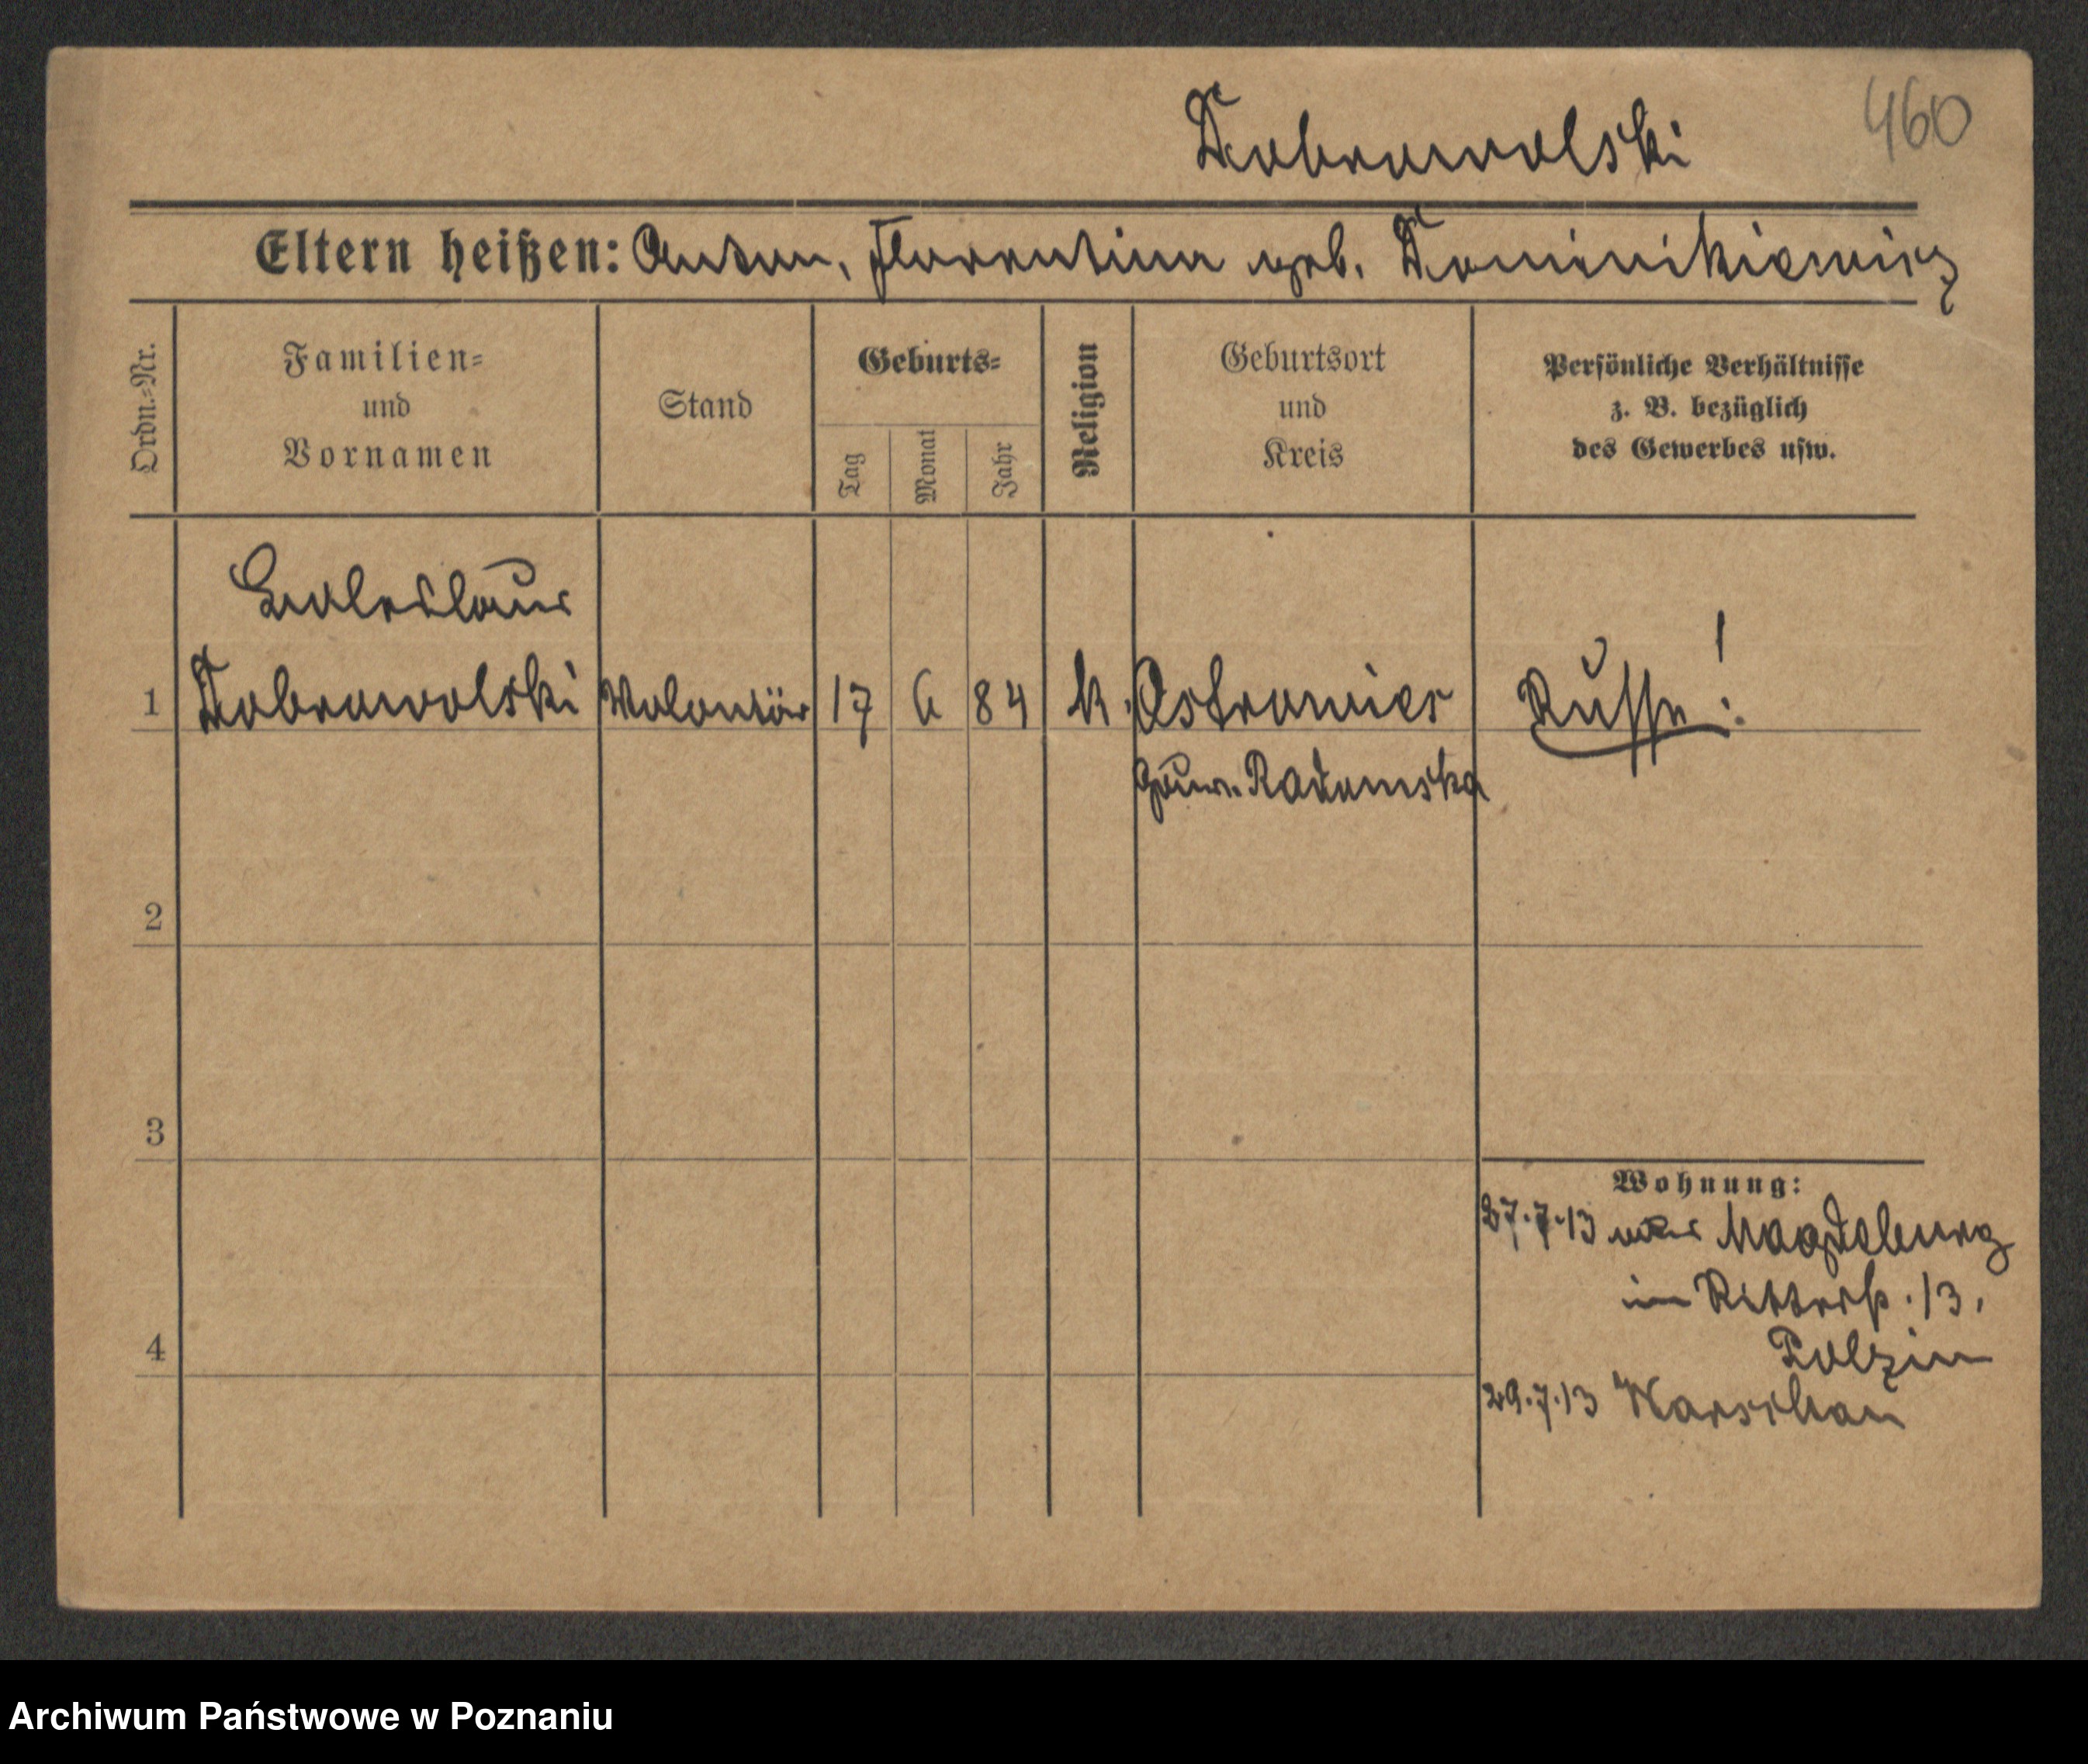 Dobrowolski
460
Eltern heißen: Anton, Florentina geb. Dominikiewicz
Ordn.-Nr.
Familien-
und
Vornamen
Stand
Geburts-
Tag
Monat
Jahr
Religion
Geburtsort
und
Kreis
Persönliche Verhältnisse
z. B. bezüglich
des Gewerbes usw.
Boleslaus
1 Dobrowolski Volontär 17 6 84 k. Ostrowiec Russe!
Gouv. Radomska
2
3
4
Wohnung:
27.7.13 Magdeburg
in Ritterstr. 13.
Polzin
29.7.13 Warschau
Archiwum Państwowe w Poznaniu